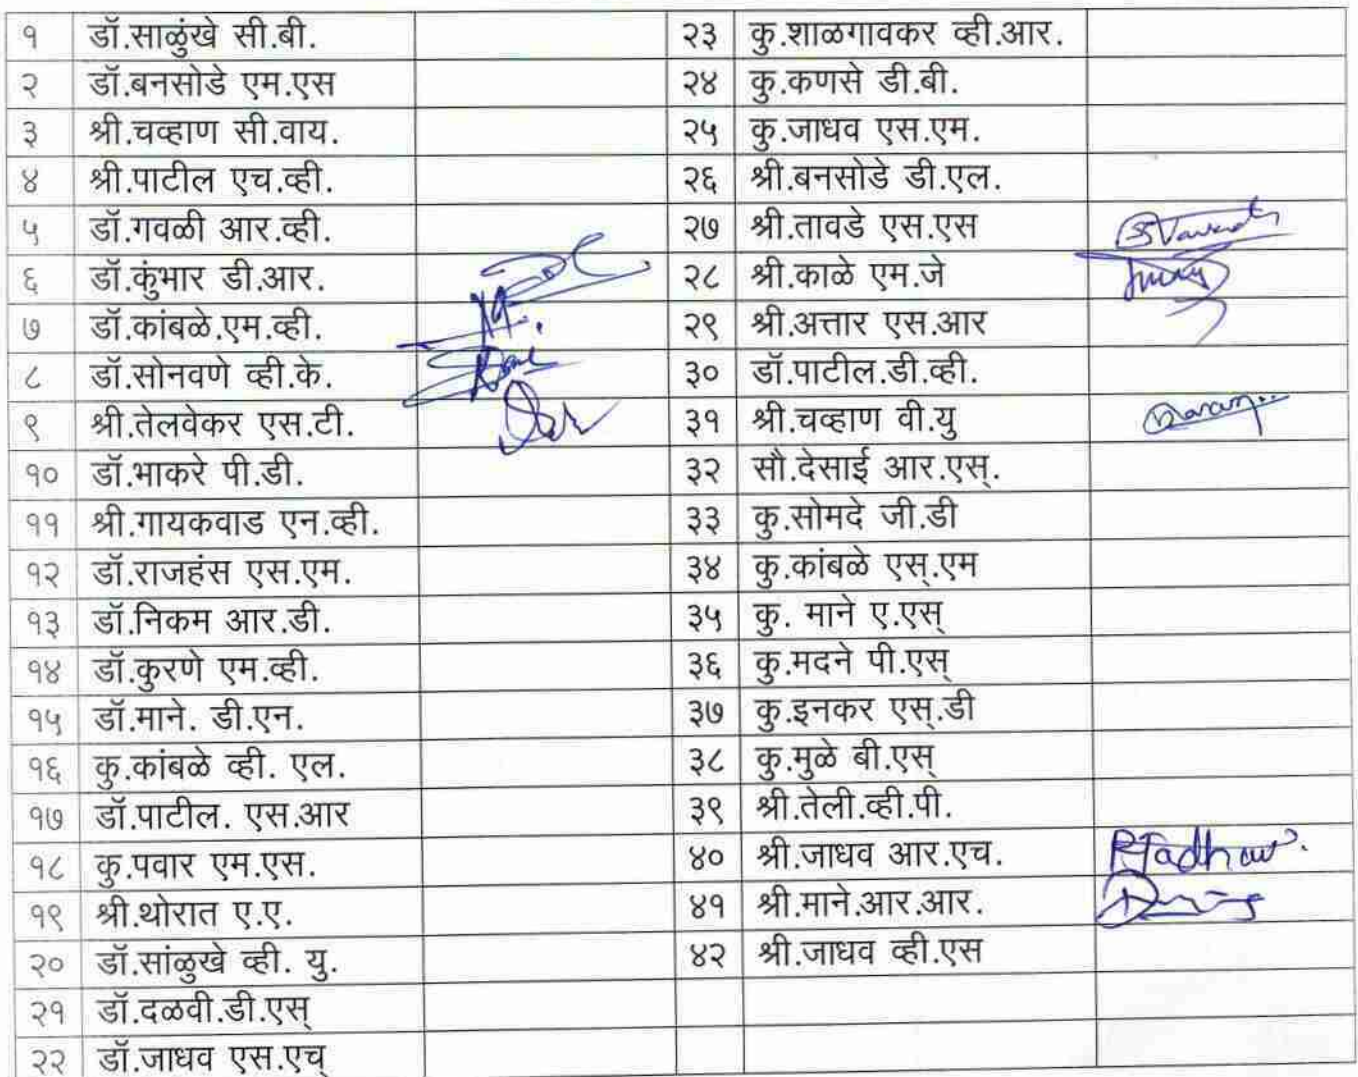 १ डॉ.साळुंखे सी.बी. २३ कु.शाळगावकर व्ही.आर.
२ डॉ.बनसोडे एम.एस २४ कु.कणसे डी.बी.
३ श्री.चव्हाण सी.वाय. २५ कु.जाधव एस.एम.
४ श्री.पाटील एच.व्ही. २६ श्री.बनसोडे डी.एल.
५ डॉ.गवळी आर.व्ही. २७ श्री.तावडे एस.एस
६ डॉ.कुंभार डी.आर. २८ श्री.काळे एम.जे
७ डॉ.कांबळे.एम.व्ही. २९ श्री.अत्तार एस.आर
८ डॉ.सोनवणे व्ही.के. ३० डॉ.पाटील.डी.व्ही.
९ श्री.तेलवेकर एस.टी. ३१ श्री.चव्हाण वी.यु
१० डॉ.भाकरे पी.डी. ३२ सौ.देसाई आर.एस्.
११ श्री.गायकवाड एन.व्ही. ३३ कु.सोमदे जी.डी
१२ डॉ.राजहंस एस.एम. ३४ कु.कांबळे एस्.एम
१३ डॉ.निकम आर.डी. ३५ कु. माने ए.एस्
१४ डॉ.कुरणे एम.व्ही. ३६ कु.मदने पी.एस्
१५ डॉ.माने. डी.एन. ३७ कु.इनकर एस्.डी
१६ कु.कांबळे व्ही. एल. ३८ कु.मुळे बी.एस्
१७ डॉ.पाटील. एस.आर ३९ श्री.तेली.व्ही.पी.
१८ कु.पवार एम.एस. ४० श्री.जाधव आर.एच. RJadhav.
१९ श्री.थोरात ए.ए. ४१ श्री.माने.आर.आर.
२० डॉ.सांळुखे व्ही. यु. ४२ श्री.जाधव व्ही.एस
२१ डॉ.दळवी.डी.एस्
२२ डॉ.जाधव एस.एच्